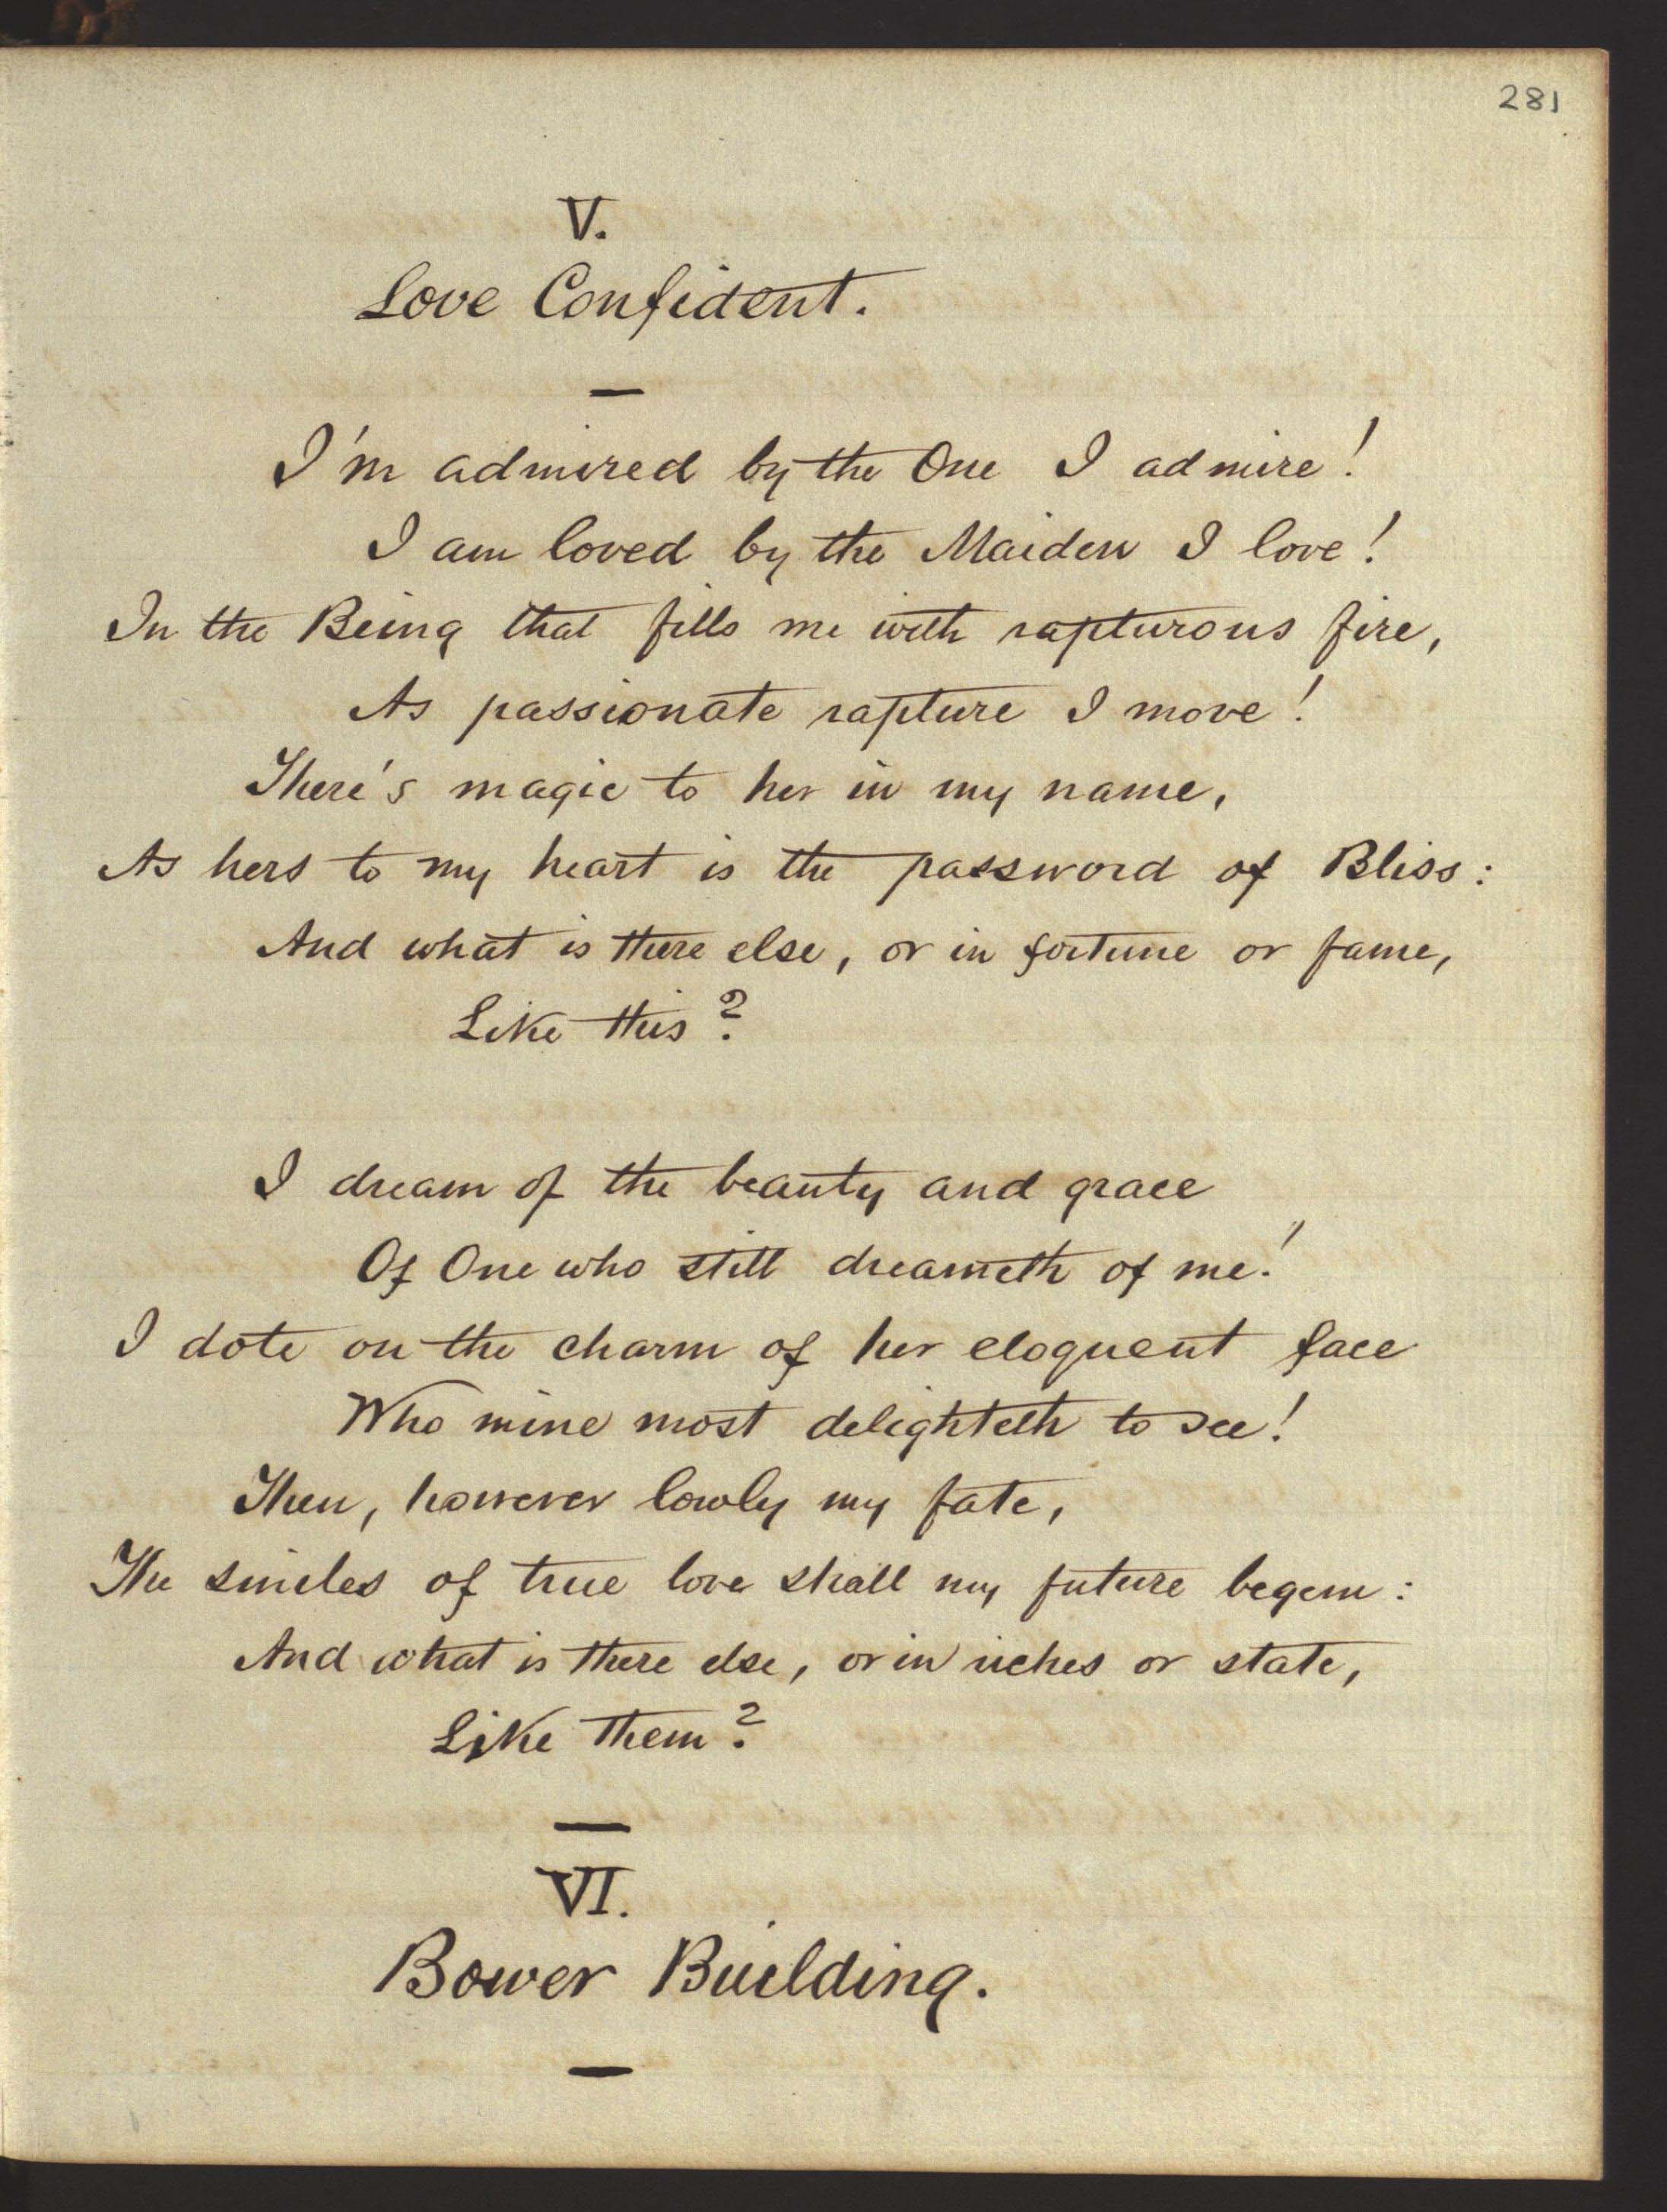 281
V.
Love Confident.
—
I'm admired by the One I admire!
I am loved by the Maiden I love!
In the Being that fills me with rapturous fire,
As passionate rapture I move!
There's magic to her in my name,
As hers to my heart is the password of Bliss:
And what is there else, or in fortune or fame,
Like this?
I dream of the beauty and grace
Of One who still dreameth of me!
I dote on the charm of her eloquent face
Who mine most delighteth to see!
Then, however lowly my fate,
The smiles of true love shall my future begem:
And what is there else, or in riches or state,
Like them?
—
VI.
Bower Building.
—